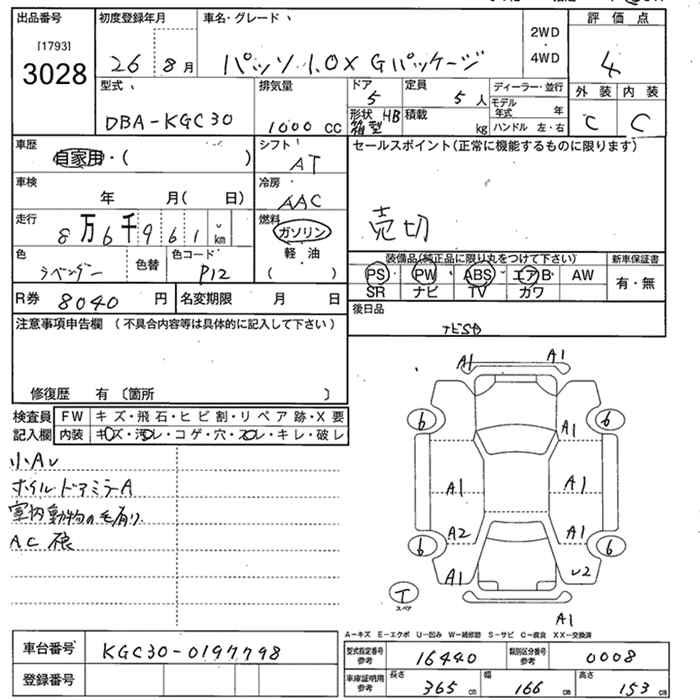 出品番号 初度登録年月 車名・グレード 評価点
[1793]
3028
26 8月 パッソ 1.0X Gパッケージ 2WD 4WD 4
型式 排気量 ドア 定員 ディーラー・並行 外装 内装
DBA-KGC30 1000 CC 5 5人 モデル年式 年 C C
形状 HB 箱型 積載 kg ハンドル 左・右
車歴 自家用・( ) シフト AT セールスポイント(正常に機能するものに限ります)
車検 年 月( 日) 冷房 AAC
売切
走行 8万6千961km 燃料 ガソリン
軽油
( )
色 ラベンダー 色替 色コード P12
装備品(純正品に限り丸をつけて下さい) 新車保証書
PS PW ABS エアB AW 有・無
SR ナビ TV カワ
R券 8040 円 名変期限 月 日
後日品
注意事項申告欄 (不具合内容等は具体的に記入して下さい)
修復歴 有 〔箇所 〕
検査員 FW キズ・飛石・ヒビ割・リペア跡・X要
記入欄 内装 キズ・汚レ・コゲ・穴・スレ・キレ・破レ
小AU
ホイルドアミラーA
室内動物の毛有り
AC
A1 A1
6 6
A1
A1 A1
A2 A1
6 6
A1 U2
T
スペア
A1
A-キズ E-エクボ U-凹み W-補修跡 S-サビ C-腐食 XX-交換済
車台番号 KGC30-0197798
登録番号
型式指定番号 参考 16440 類別区分番号 参考 0008
車庫証明用 参考 長さ 365 cm 幅 166 cm 高さ 153 cm